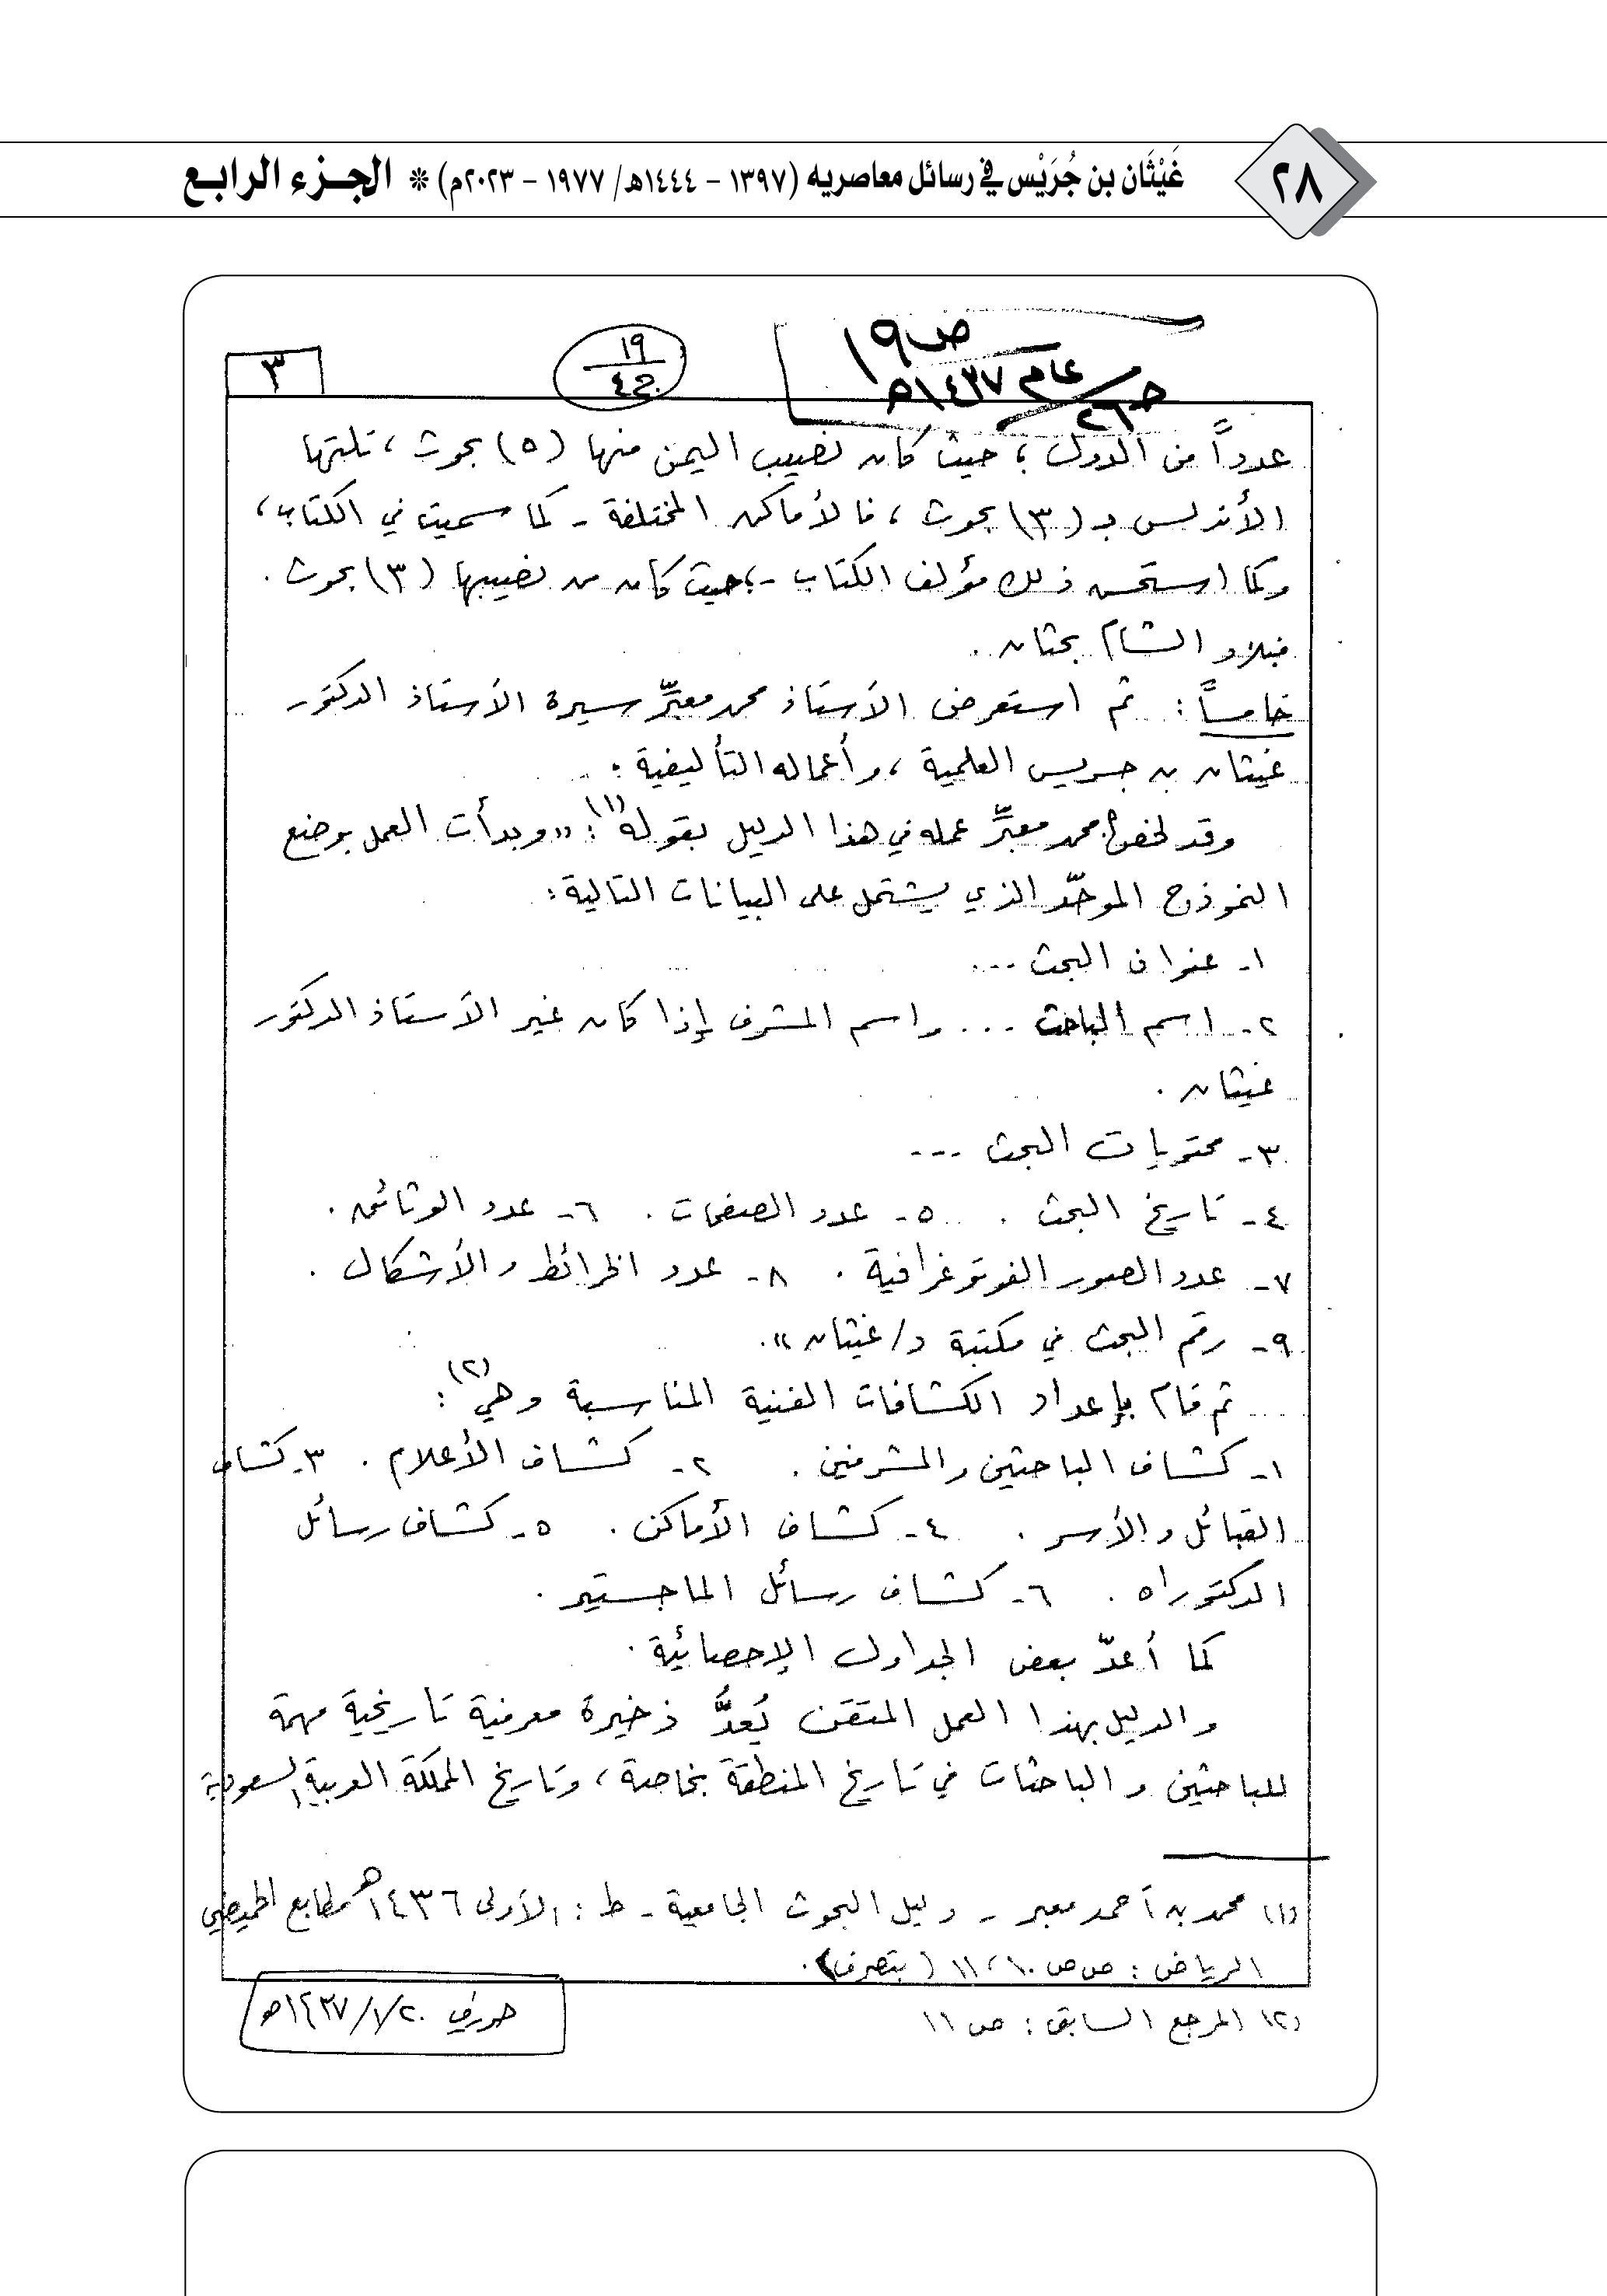 ٢٨
غَيْثَان بن جُرَيْس في رسائل معاصريه (١٣٩٧ - ١٤٤٤هـ/ ١٩٧٧ - ٢٠٢٣م) * الجـزء الرابـع
ص١٩
عام ١٤٣٧هـ
ج٢٦
١٩
ج٤
٣
عدداً من الدول؛ حيث كان نصيب اليمن منها (٥) بحوث، تلتها
الأندلس بـ (٣) بحوث، فالأماكن المختلفة - كما سميت في الكتاب،
وكما استحسن ذلك مؤلف الكتاب -؛ حيث كان من نصيبها (٣) بحوث.
فبلاد الشام بحثان.
خامساً: ثم استعرض الأستاذ محمد معبِّر سيرة الأستاذ الدكتور
غيثان بن جريس العلمية، وأعماله التأليفية:
وقد لخص أ. محمد معبِّر عمله في هذا الدليل بقوله(١): «وبدأت العمل بوضع
النموذج الموحّد الذي يشتمل على البيانات التالية:
١- عنوان البحث ...
٢- اسم الباحث ... واسم المشرف إذا كان غير الأستاذ الدكتور
غيثان.
٣- محتويات البحث ...
٤- تاريخ البحث. ٥- عدد الصفحات. ٦- عدد الوثائق.
٧- عدد الصور الفوتوغرافية. ٨- عدد الخرائط والأشكال.
٩- رقم البحث في مكتبة د/غيثان».
ثم قام بإعداد الكشافات الفنية المناسبة وهي(٢):
١- كشاف الباحثين والمشرفين. ٢- كشاف الأعلام. ٣- كشاف
القبائل والأسر. ٤- كشاف الأماكن. ٥- كشاف رسائل
الدكتوراه. ٦- كشاف رسائل الماجستير.
كما أعدّ بعض الجداول الإحصائية.
والدليل بهذا العمل المتقن يُعدُّ ذخيرة معرفية تاريخية مهمة
للباحثين والباحثات في تاريخ المنطقة بخاصة، وتاريخ المملكة العربية السعودية
(١) محمد بن أحمد معبر - دليل البحوث الجامعية - ط: الأولى ١٤٣٦هـ مطابع الحميضي
الرياض: ص ص ١٠، ١١ (بتصرف).
(٢) المرجع السابق: ص ١١
٢٠/١/١٤٣٧هـ